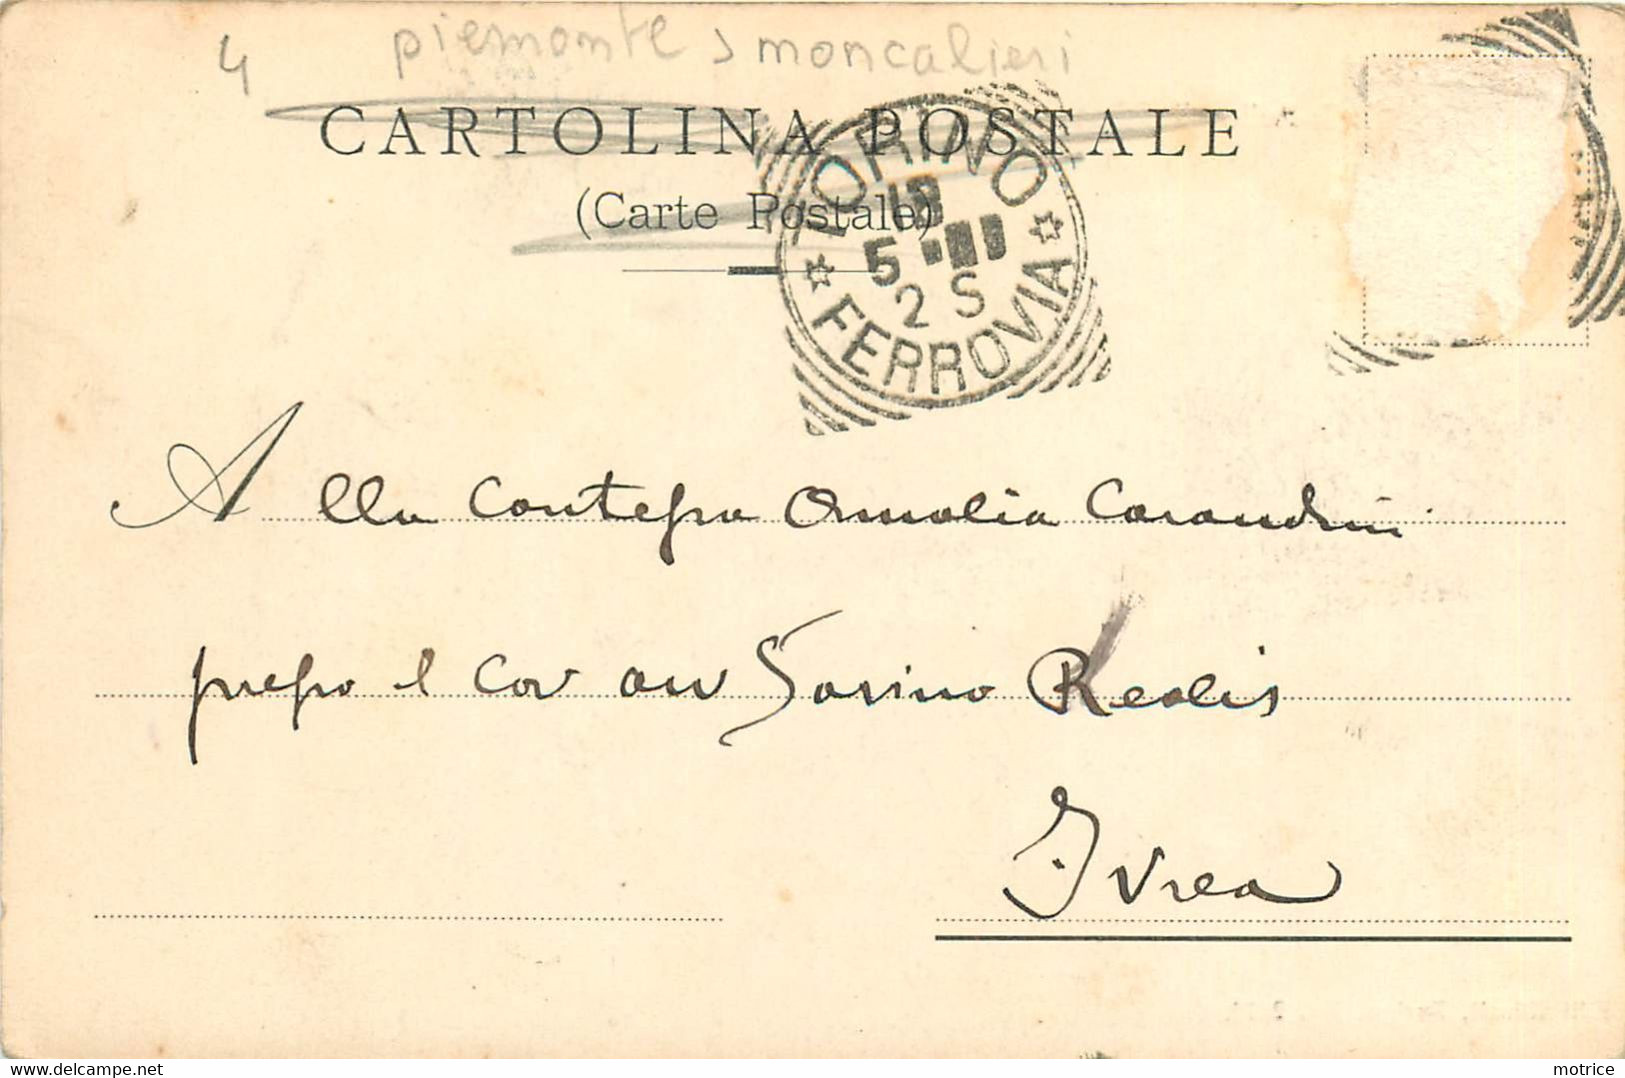 4 piemonte > moncalieri
CARTOLINA POSTALE
(Carte Postale)
TORINO
5
2 S
FERROVIA
Alla Contessa Amalia Carandini
presso il Cav avv Savino Realis
Ivrea
motrice